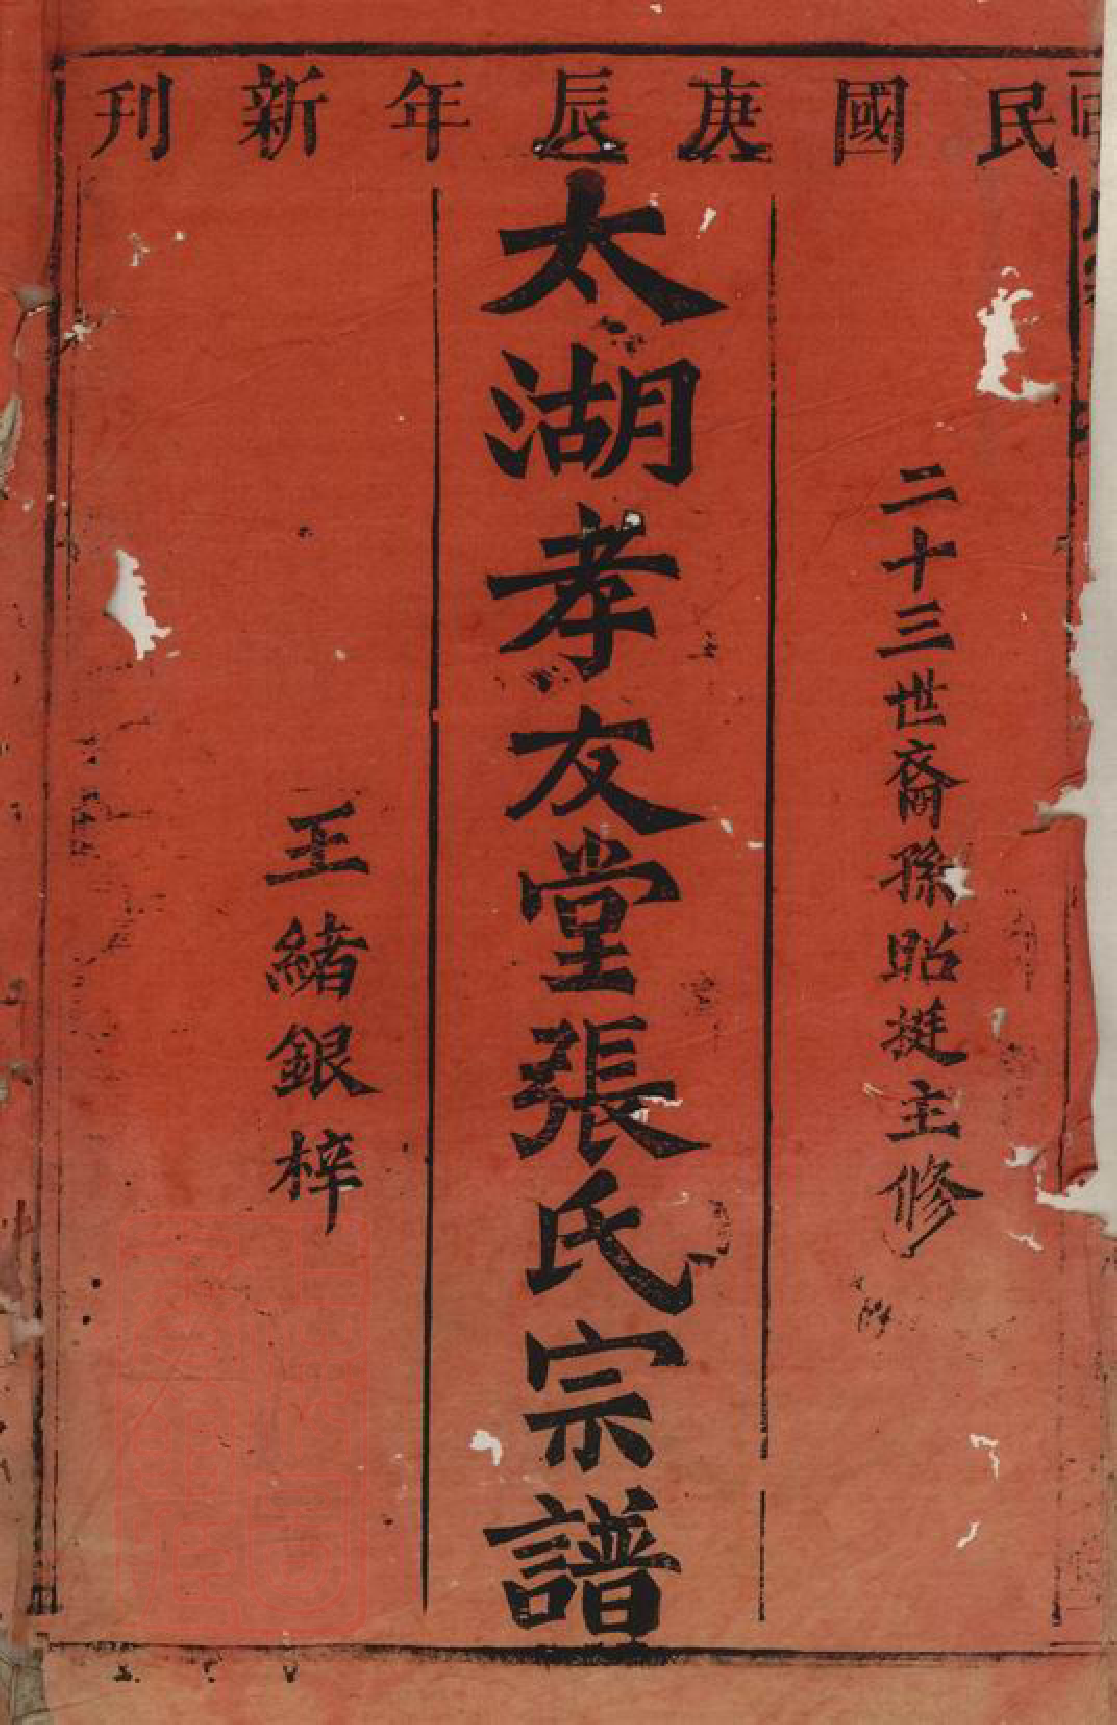 民國庚辰年新刊
二十三世裔孫貽挺主修
太湖孝友堂張氏宗譜
王緒銀梓